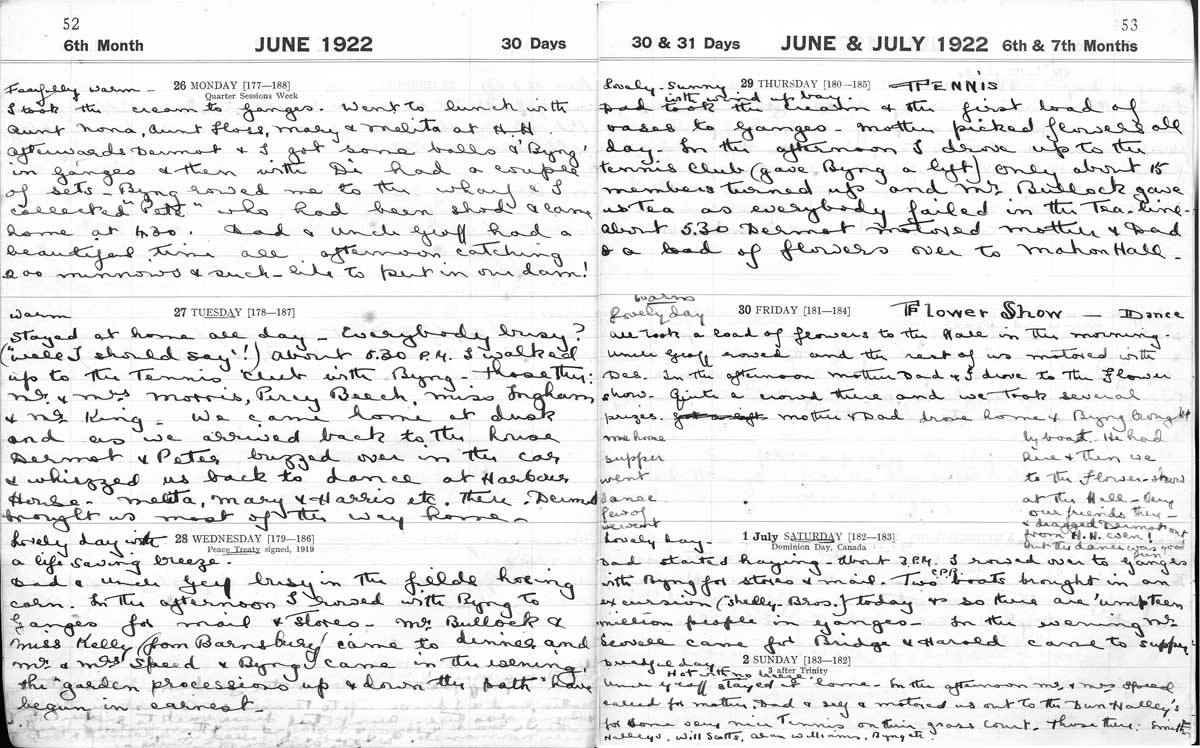 52
6th Month JUNE 1922 30 Days
26 MONDAY [177—188]
Quarter Sessions Week
Fearfully warm —
I took the cream to Ganges. Went to lunch with
Aunt Nona, Aunt Floss, Mary & Melita at H.H.
afterwards Dermot & I got some balls & 'Byng'
in Ganges & then with Di had a couple
of sets — Byng rowed me to the wharf & I
collected "Pat" who had been shod & came
home at 4.30. Dad & Uncle Geoff had a
beautiful time all afternoon catching
200 minnows & such-like to put in our dam!
27 TUESDAY [178—187]
Warm
Stayed at home all day — Everybody busy?
("Well I should say"!) About 5.30 P.M. I walked
up to the Tennis Club with Byng — Those there:
Mr. & Mrs Morris, Percy Beech, Miss Ingham
& Mr King — We came home at dusk
and as we arrived back to the house
Dermot & Peter buzzed over in the car
& whizzed us back to dance at Harbour
House — Melita, Mary & Harris etc. there. Dermot
brought us most of the way home —
28 WEDNESDAY [179—186]
Peace Treaty signed, 1919
Lovely day with
a life saving breeze.
Dad & Uncle Geoff busy in the fields hoeing
corn. In the afternoon I rowed with Byng to
Ganges for mail & stores — Mr. Bullock &
Miss Kelly (from Barnsbury) came to dinner and
Mr. & Mrs Speed & Byng came in the evening.
The "garden processions up & down the path" have
begun in earnest —
53
30 & 31 Days JUNE & JULY 1922 6th & 7th Months
29 THURSDAY [180—185] TENNIS
Lovely — Sunny
with wind up bay
Dad took the cream & the first load of
vases to Ganges — Mother picked flowers all
day. In the afternoon I drove up to the
Tennis Club (gave Byng a lift) Only about 15
members turned up and Mr. Bullock gave
us Tea as everybody failed in the Tea-line —
About 5.30 Dermot motored Mother & Dad
& a load of flowers over to Mahon Hall —
30 FRIDAY [181—184] Flower Show — Dance
Warm
Lovely day
We took a load of flowers to the Hall in the morning.
Uncle Geoff rowed and the rest of us motored with
Des. In the afternoon Mother Dad & I drove to the Flower
show. Quite a crowd there and we took several
prizes. Got a lift Mother & Dad drove home & Byng brought
me home by boat. He had
supper here & then we
went to the Flower-show
dance at the Hall — Very
few of our friends there —
we went & dragged Dermot out
from H.H. even!
but the dance was good
fun
1 July SATURDAY [182—183]
Dominion Day, Canada
Lovely day —
Dad started haying — About 3 P.M. I rowed over to Ganges
with Byng for stores & mail. Two C.P.R. boats brought in an
excursion (Shelly Bros.) today & so there are 'umpteen
million people in Ganges — In the evening Mr.
Scovell came for Bridge & Harold came to supper
2 SUNDAY [183—182]
3 after Trinity
Dreadful day
Hot with no breeze
Uncle Geoff stayed at home — In the afternoon Mr. & Mrs Speed
called for Mother, Dad & self & motored us out to the
for some very nice Tennis on their grass court. Those there: Smiths
Halleys, Will Scotts, Alan Williams, Byng etc.